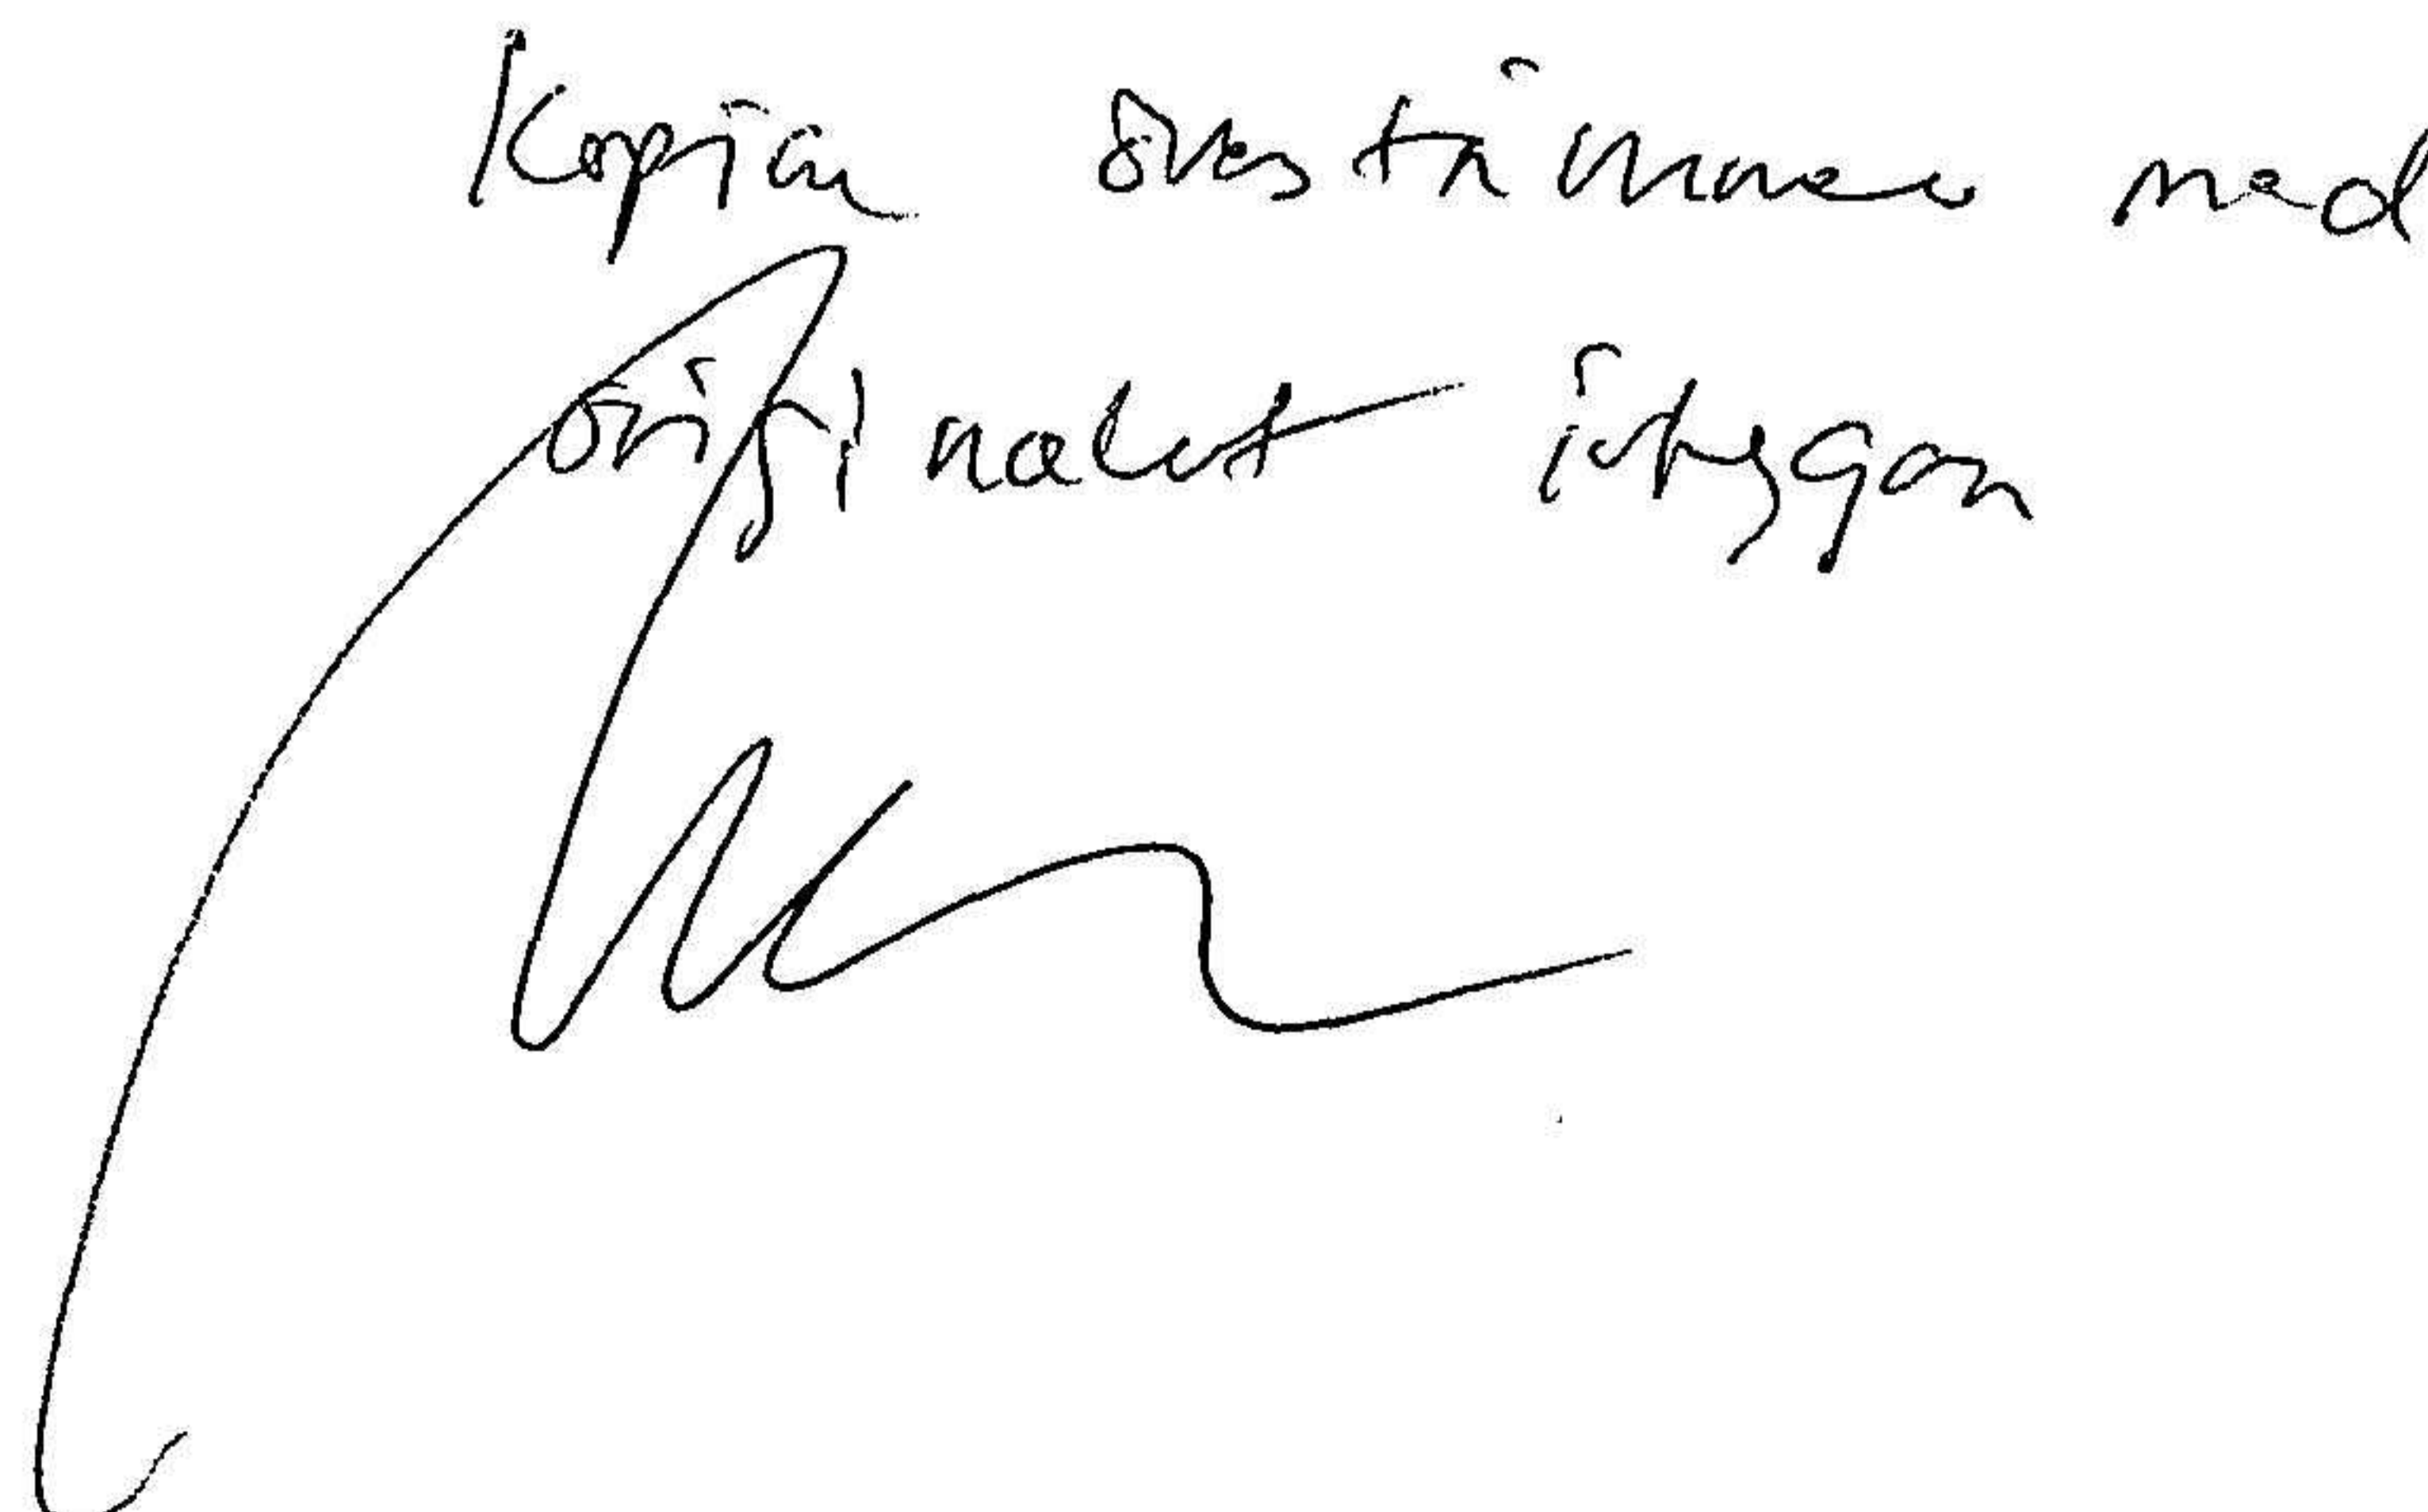 Kopian överstämmer med
originalet intygar